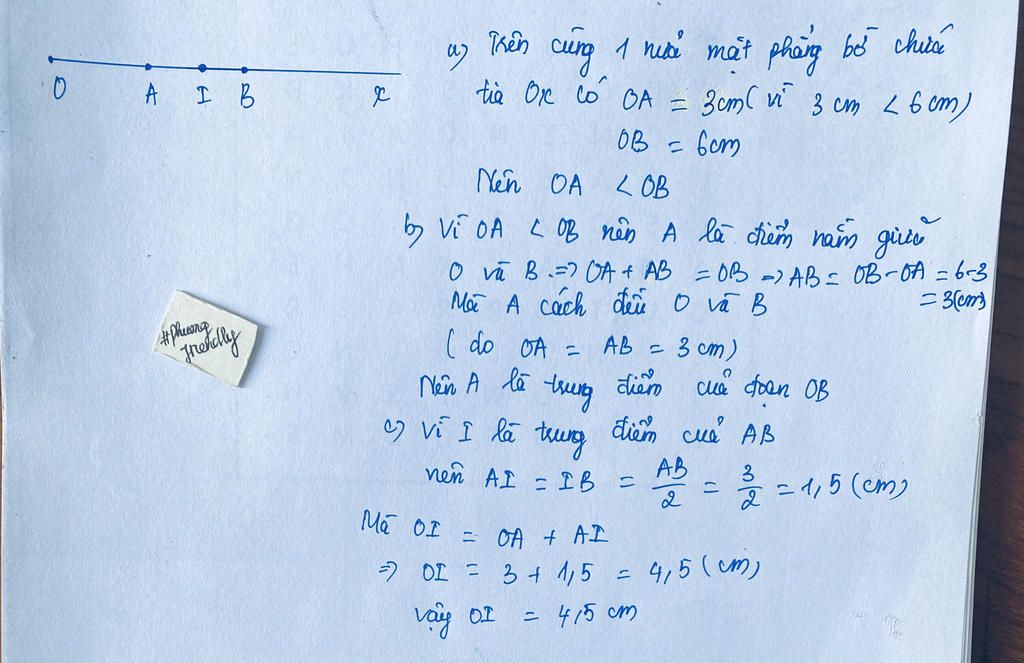 O A I B x
a) Trên cùng 1 nửa mặt phẳng bờ chứa
tia Ox có OA = 3cm ( vì 3 cm < 6 cm)
OB = 6cm
Nên OA < OB
b) Vì OA < OB nên A là điểm nằm giữa
O và B => OA + AB = OB => AB = OB - OA = 6-3
= 3(cm)
Mà A cách đều O và B
( do OA = AB = 3 cm)
#Phuong
friendly
Nên A là trung điểm của đoạn OB
c) Vì I là trung điểm của AB
nên AI = IB = AB/2 = 3/2 = 1,5 (cm)
Mà OI = OA + AI
=> OI = 3 + 1,5 = 4,5 (cm)
Vậy OI = 4,5 cm